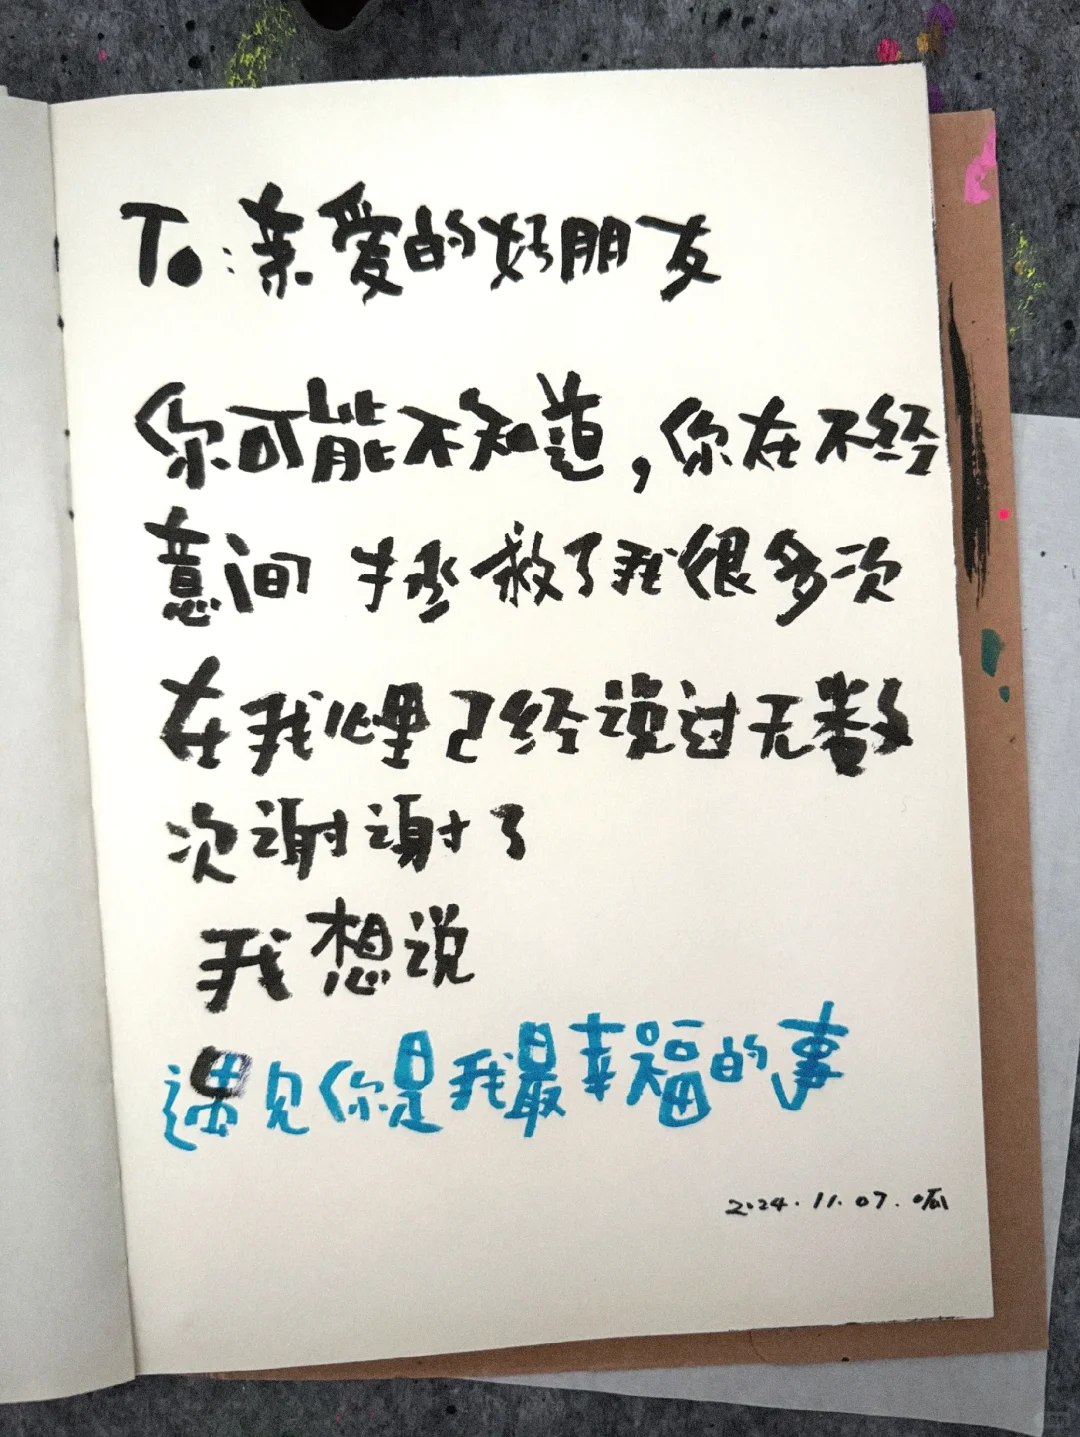 To:亲爱的好朋友
你可能不知道,你在不经
意间 拯救了我很多次
在我心里已经说过无数
次谢谢了
我想说
遇见你是我最幸福的事
2024.11.07.呱